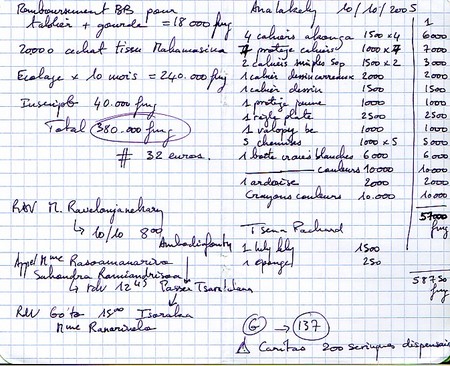 Remboursement BB pour
tablier + gourde = 18000 fmg
20000 achat tissu Mahamasina
Ecolage x 10 mois = 240.000 fmg
Inscript° 40.000 fmg
Total 380.000 fmg
# 32 euros.
RDV M. Ravelonjanahary
↳ 10/10 800
Ambodifonty
Appel Mme Rasoamanarivo
Sahondra Ramiandrisoa
↳ RDV 12 45 Passer
RDV Go'to 15 00 Isoraka
Mme Ranarivelo
Analakely 10/10/2005
4 cahiers 1500 x 4 6000
7 protège cahiers 1000 x 7 7000
2 cahiers simples 1500 x 2 3000
1 cahier dessin carreaux 2000 2000
1 cahier dessin 1500 1500
1 protège jaune 1000 1000
1 règle plate 2500 2500
1 valopy be 1000 1000
5 chemises 1000 x 5 5000
1 boîte craies blanches 6000 6000
couleurs 10000 10000
1 ardoise 2000 2000
Crayons couleurs 10.000 10000
57000
fmg
Tsena
1 1500
1 éponge 250
58750
fmg
G → 137
Caritas 200 seringues